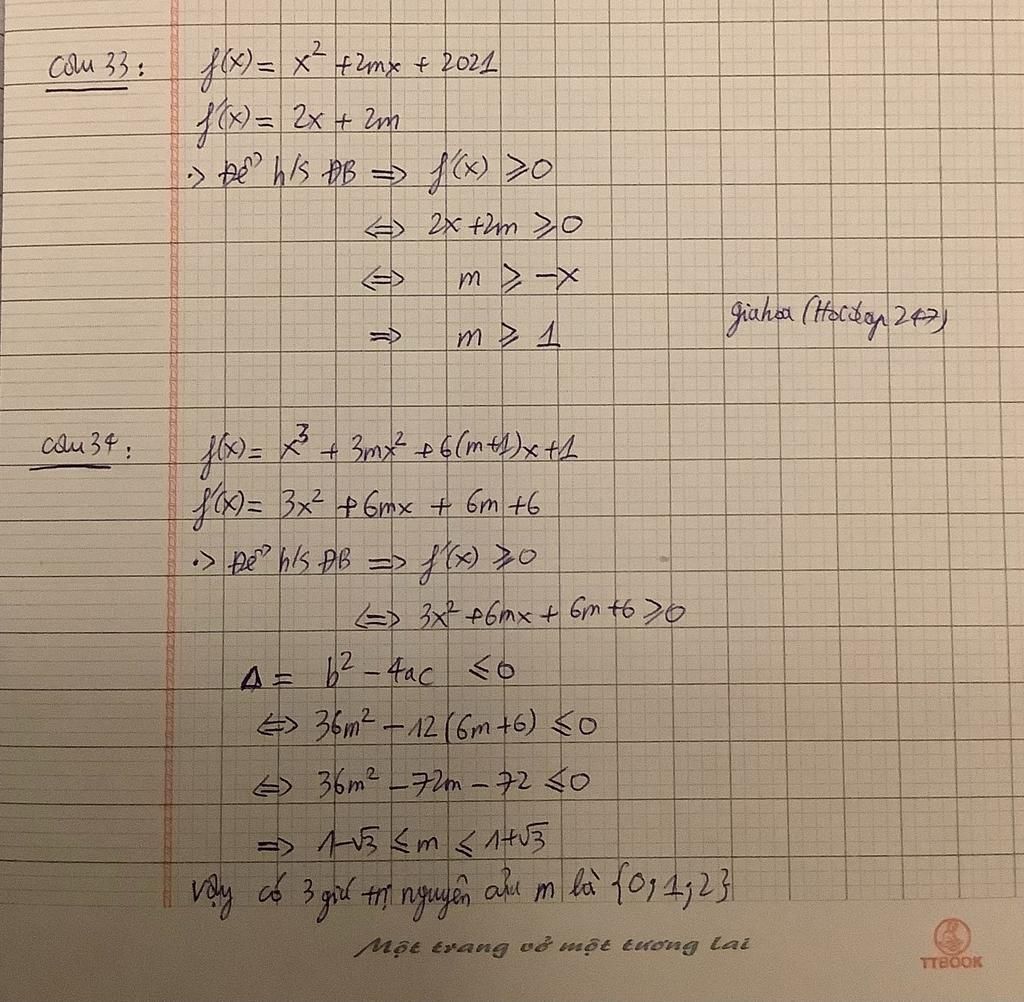 Câu 33 : f(x) = x² + 2mx + 2021
f'(x) = 2x + 2m
·> Để h/s ĐB => f'(x) ⩾ 0
<=> 2x + 2m ⩾ 0
<=> m ⩾ -x
=> m ⩾ 1
giahoa (Hoidap 247)
Câu 34 : f(x) = x³ + 3mx² + 6(m+1)x + 1
f'(x) = 3x² + 6mx + 6m + 6
·> Để h/s ĐB => f'(x) ⩾ 0
<=> 3x² + 6mx + 6m + 6 ⩾ 0
Δ = b² - 4ac ⩽ 0
<=> 36m² - 12(6m+6) ⩽ 0
<=> 36m² - 72m - 72 ⩽ 0
=> 1-√3 ⩽ m ⩽ 1+√3
Vậy có 3 giá trị nguyên của m là {0; 1; 2}
Một trang vở một tương lai
TTBOOK